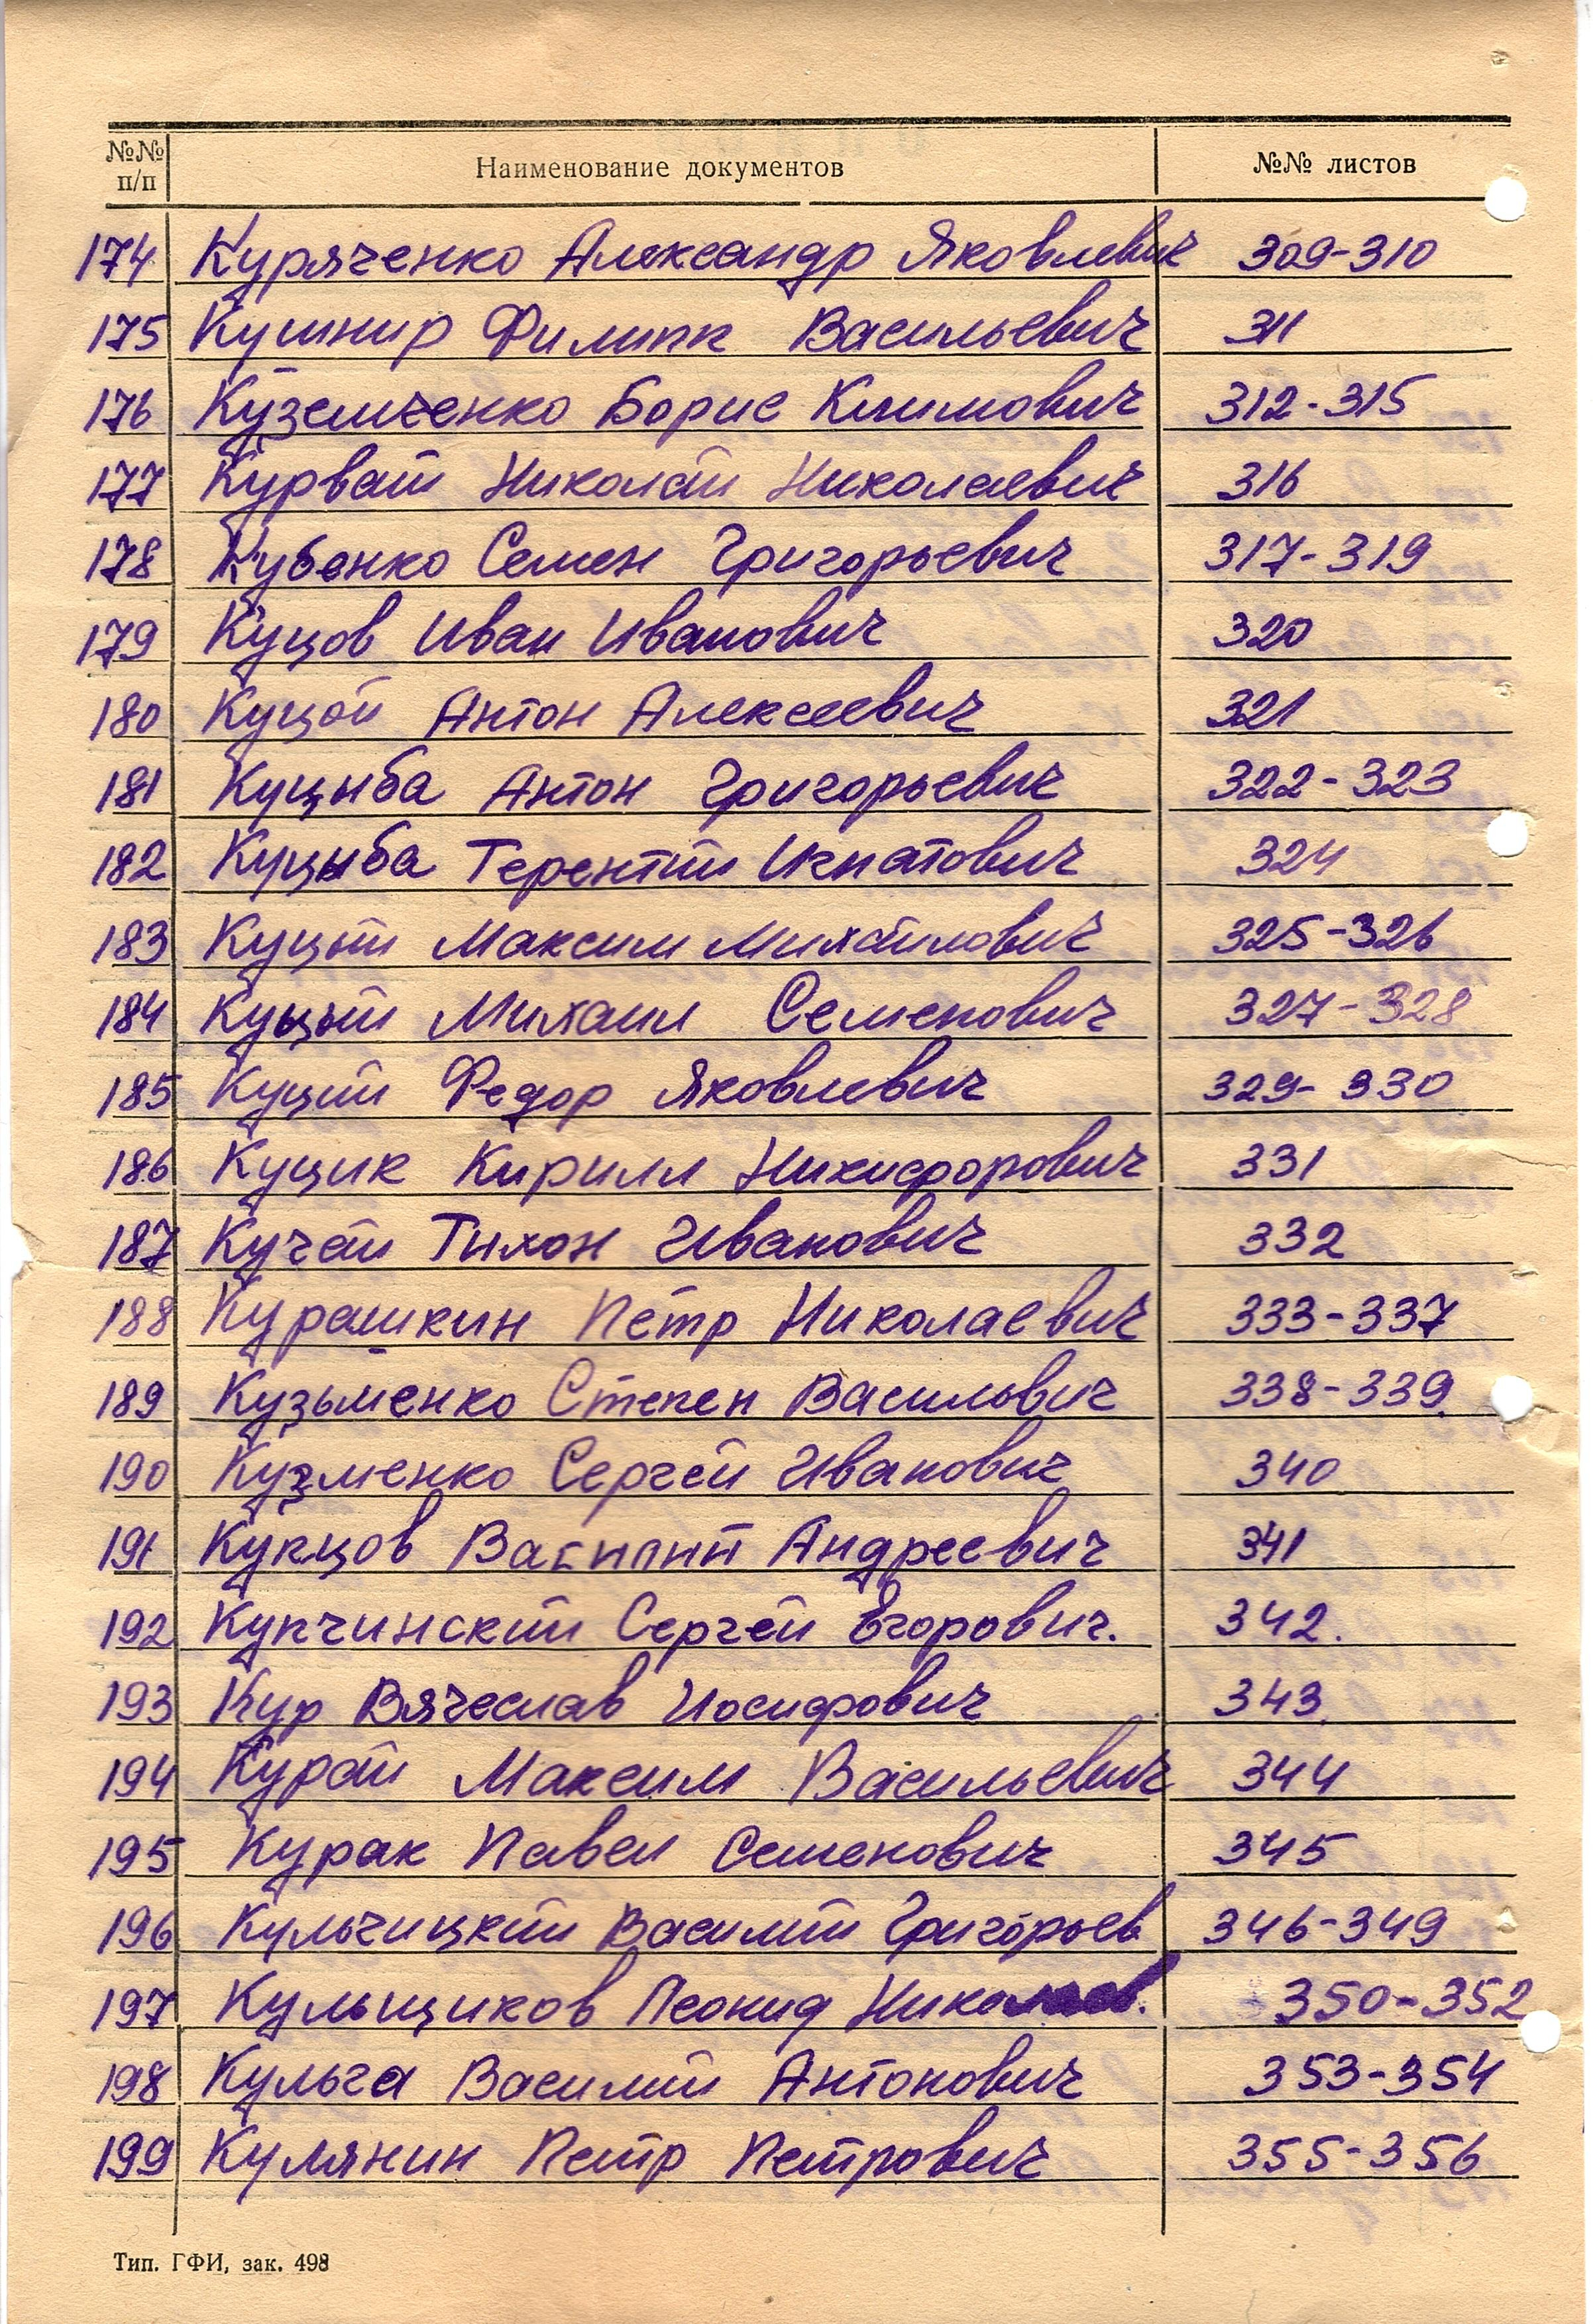 №№ п/п Наименование документов №№ листов
174 Куряченко Александр Яковлевич 309-310
175 Кушнир Филипп Васильевич 311
176 Куземченко Борис Климович 312-315
177 Курвай Николай Николаевич 316
178 Кубенко Семен Григорьевич 317-319
179 Куцов Иван Иванович 320
180 Куцой Антон Алексеевич 321
181 Куцыба Антон Григорьевич 322-323
182 Куцыба Терентий Игнатович 324
183 Куцый Максим Михайлович 325-326
184 Куцый Михаил Семенович 327-328
185 Куций Федор Яковлевич 329-330
186 Куцик Кирилл Никифорович 331
187 Кучай Тихон Иванович 332
188 Курашкин Петр Николаевич 333-337
189 Кузьменко Степен Васильвич 338-339
190 Кузменко Сергей Иванович 340
191 Купцов Василий Андреевич 341
192 Купчинский Сергей Егорович. 342.
193 Кур Вячеслав Иосифович 343
194 Курай Максим Васильевич 344
195 Курак Павел Семенович 345
196 Кульчицкий Василий Григорьев 346-349
197 Кульщиков Леонид Николаев. 350-352
198 Кульга Василий Антонович 353-354
199 Кулянин Петр Петрович 355-356
Тип. ГФИ, зак. 498